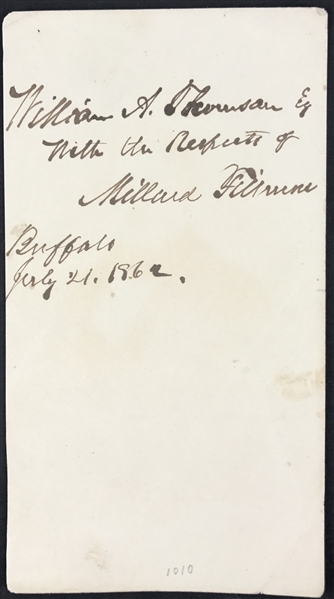 William A. Thomson Eq
With the Respects of
Millard Fillmore
Buffalo
July 21. 1862.
1010